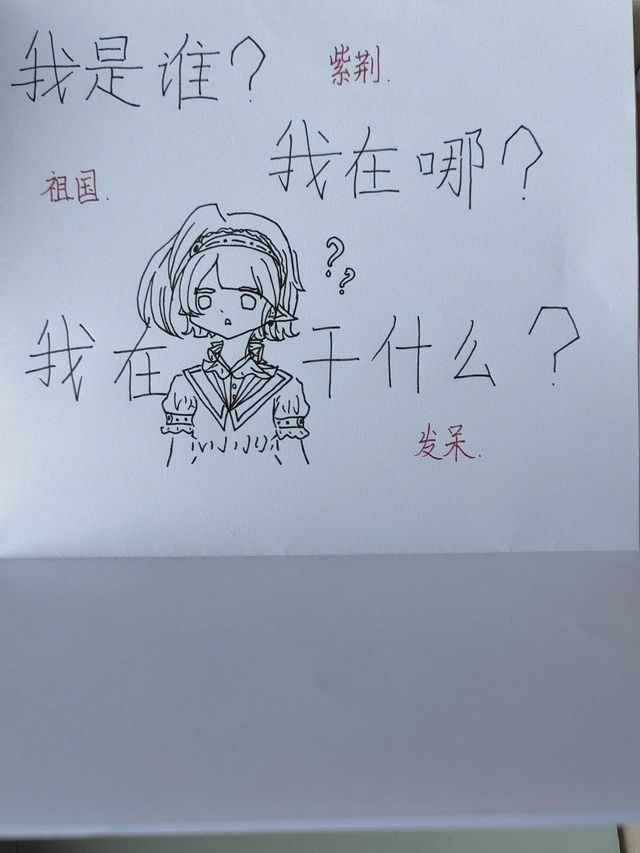 我是谁？
紫荆.
我在哪？
祖国.
？？
我在干什么？
发呆.